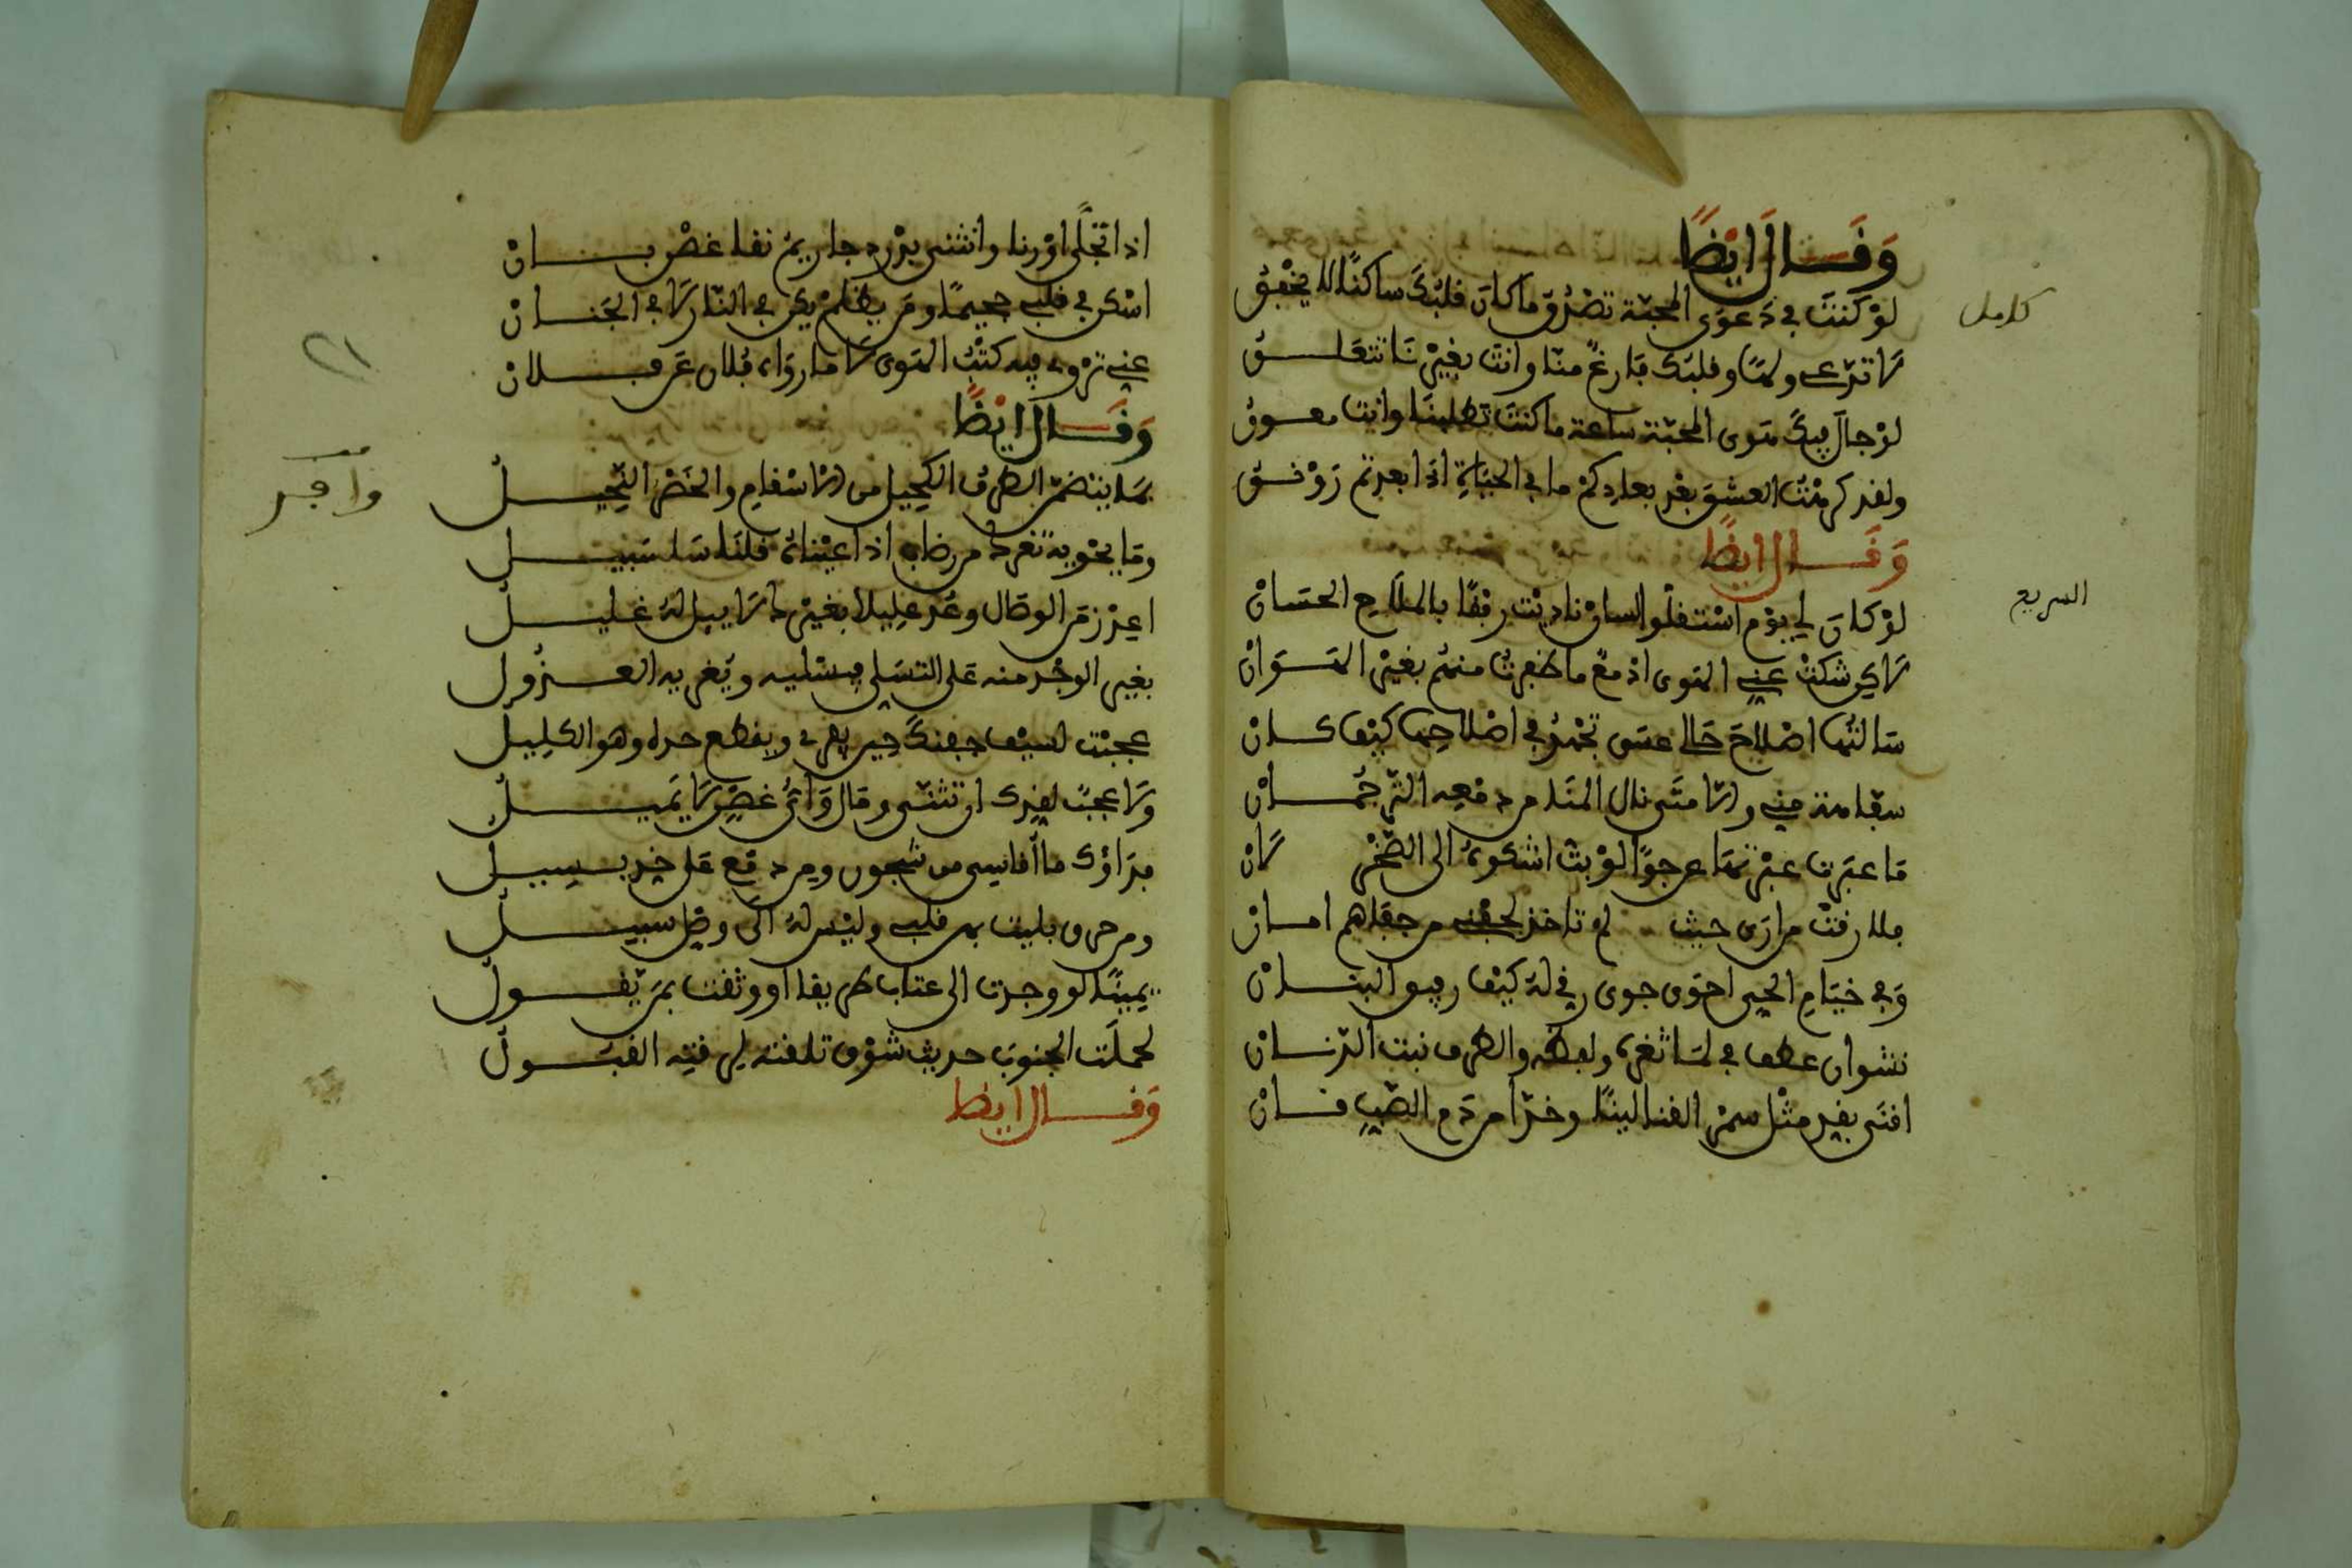 وقال ايضا
كامل
لو كنت في دعوى المحبة تصدق ما كان قلبك ساكنا لا يخفق
لا تدعي ولها وقلبك فارغ منا وانت بغيرنا تتعلق
لو جال فيك هوى المحبة ساعة ما كنت تطلبنا وانت معوق
ولقد كرهت العشق بعد بعادكم ما في الحياة اذا بعدتم رونق
وقال ايضا
السريع
لو كان لي يوم استقلوا لسان ناديت رفقا بالملاح الحسان
لاكن شكت عيني الهوى ادمعا ما ظفرت منهم بغير الهوان
سالتها اصلاح حالي عسى تجهد في اصلاحها كيف كان
سفاهة مني ولا متى نال المنا من دمعه الترجمان
ما عبرت عبرتها عن جوا لو بث اشكوه الى الصخر لان
فلا رقت من ارى حيث لم تاخذ لجفني من جفاهم امان
وفي خيام الحي احوى جوى رقي له كيف رقيق البنان
نشوان عطف في لما ثغره ولفظه والطرف نبت الدنان
افتى بقد مثل سمر القنا لينا وخد من دم الصب قان
اذا تجلى او رنا وانثنى يزرد جا ريم نقا غصن بان
اسكن في قلبي جحيما ومن يظلم يكن في النار لا في الجنان
عني تروى فيه كتب الهوى لا ما رواه فلان عن فلان
٢١
وقال ايضا
وافر
بما يتضمن الطرف الكحيل من الاسقام والخصر النحيل
وما يحويه ثغرك من رضاب اذا عيناه قلنا سلسبيل
اعد زمن الوصال وعد عليلا بغيرك لا يبل له غليل
بغير الوجد منه على التسلي فيسليه ويغريه العذول
عجبت لسيف جفنك حين يفري ويقطع حده وهو الكليل
ولا عجب لقدك ان تثنى ومال واي غصن لا يميل
فداؤك ما اقاسي من شجون ومن دمع على خدي يسيل
ومن حرق بليت بهن قلبي وليس له الى وصل سبيل
يمينا لو وجدت الى عتاب طريقا او وثقت بمن يقول
لحملت الجنوب حديث شوق تلقته لرقته القبول
وقال ايضا